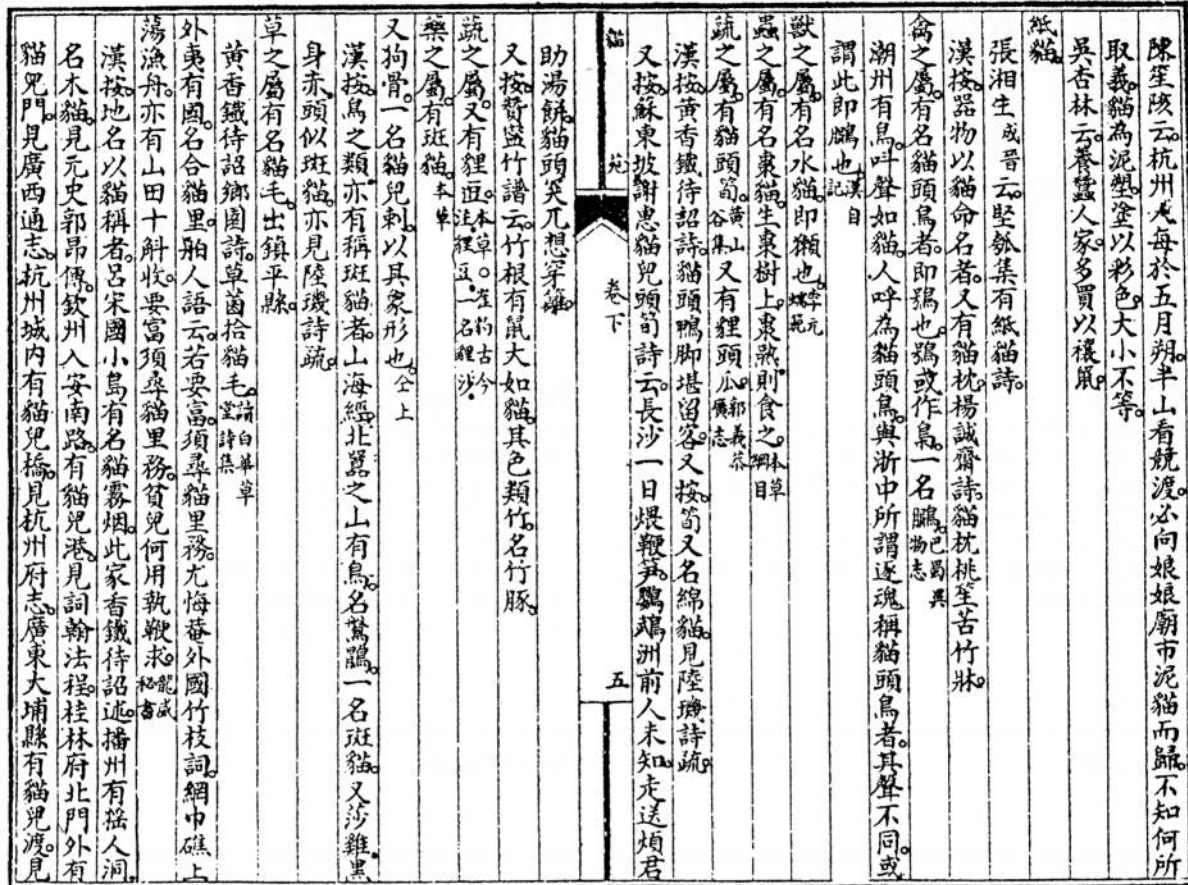 陳笙陔云。杭州人每於五月朔。半山看競渡。必向娘娘廟市泥貓而歸。不知何所
取義。貓為泥塑。塗以彩色。大小不等。
吳杏林云。養蠶人家。多買以禳鼠。
紙貓。
張湘生成晉云。堅瓠集有紙貓詩。
漢按。器物以貓命名者。又有貓枕。楊誠齋詩。貓枕桃笙苦竹牀。
禽之屬。有名貓頭鳥者。即鴞也。鴞或作梟。一名鵩。巴蜀異物志
潮州有鳥。叫聲如貓。人呼為貓頭鳥。與浙中所謂逐魂稱貓頭鳥者。其聲不同。或
謂此即鵩也。漢自記
獸之屬。有名水貓。即獺也。李元蠕範
蟲之屬。有名棗貓。生棗樹上。棗熟則食之。本草綱目
蔬之屬。有貓頭筍。黃山谷集。又有貍頭瓜。郭義恭廣志
漢按。黃香鐵待詔詩。貓頭鴨脚堪留客。又按。筍又名綿貓。見陸璣詩疏。
又按。蘇東坡謝惠貓兒頭筍詩云。長沙一日煨鞭笋。鸚鵡洲前人未知。走送煩君
貓苑 卷下 五
助湯餅。貓頭突兀想穿籬。
又按。贊寧竹譜云。竹根有鼠大如貓。其色類竹。名竹豚。
蔬之屬。又有貍豆。本草。崔豹古今注。貍豆。一名貍沙。
藥之屬。有斑貓。本草
又狗骨。一名貓兒刺。以其象形也。仝上
漢按。鳥之類。亦有稱斑貓者。山海經。北嚣之山有鳥。名鴽鶻。一名斑貓。又沙雞。黑
身赤頭似斑貓。亦見陸璣詩疏。
草之屬。有名貓毛。出鎮平縣。
黃香鐵待詔鄉園詩。草菌拾貓毛。讀白華草堂詩集
外夷有國。名合貓里。舶人語云。若要富。須尋貓里務。尤悔菴外國竹枝詞。網巾礁上
蕩漁舟。亦有山田十斛收。要富須尋貓里務。貧兒何用執鞭求。龍威秘書
漢按。地名以貓稱者。呂宋國小島有名貓霧烟。此家香鐵待詔述。播州有猺人洞。
名木貓。見元史郭昂傳。欽州入安南路。有貓兒港。見詞翰法程。桂林府北門外有
貓兒門。見廣西通志。杭州城內有貓兒橋。見杭州府志。廣東大埔縣有貓兒渡。見